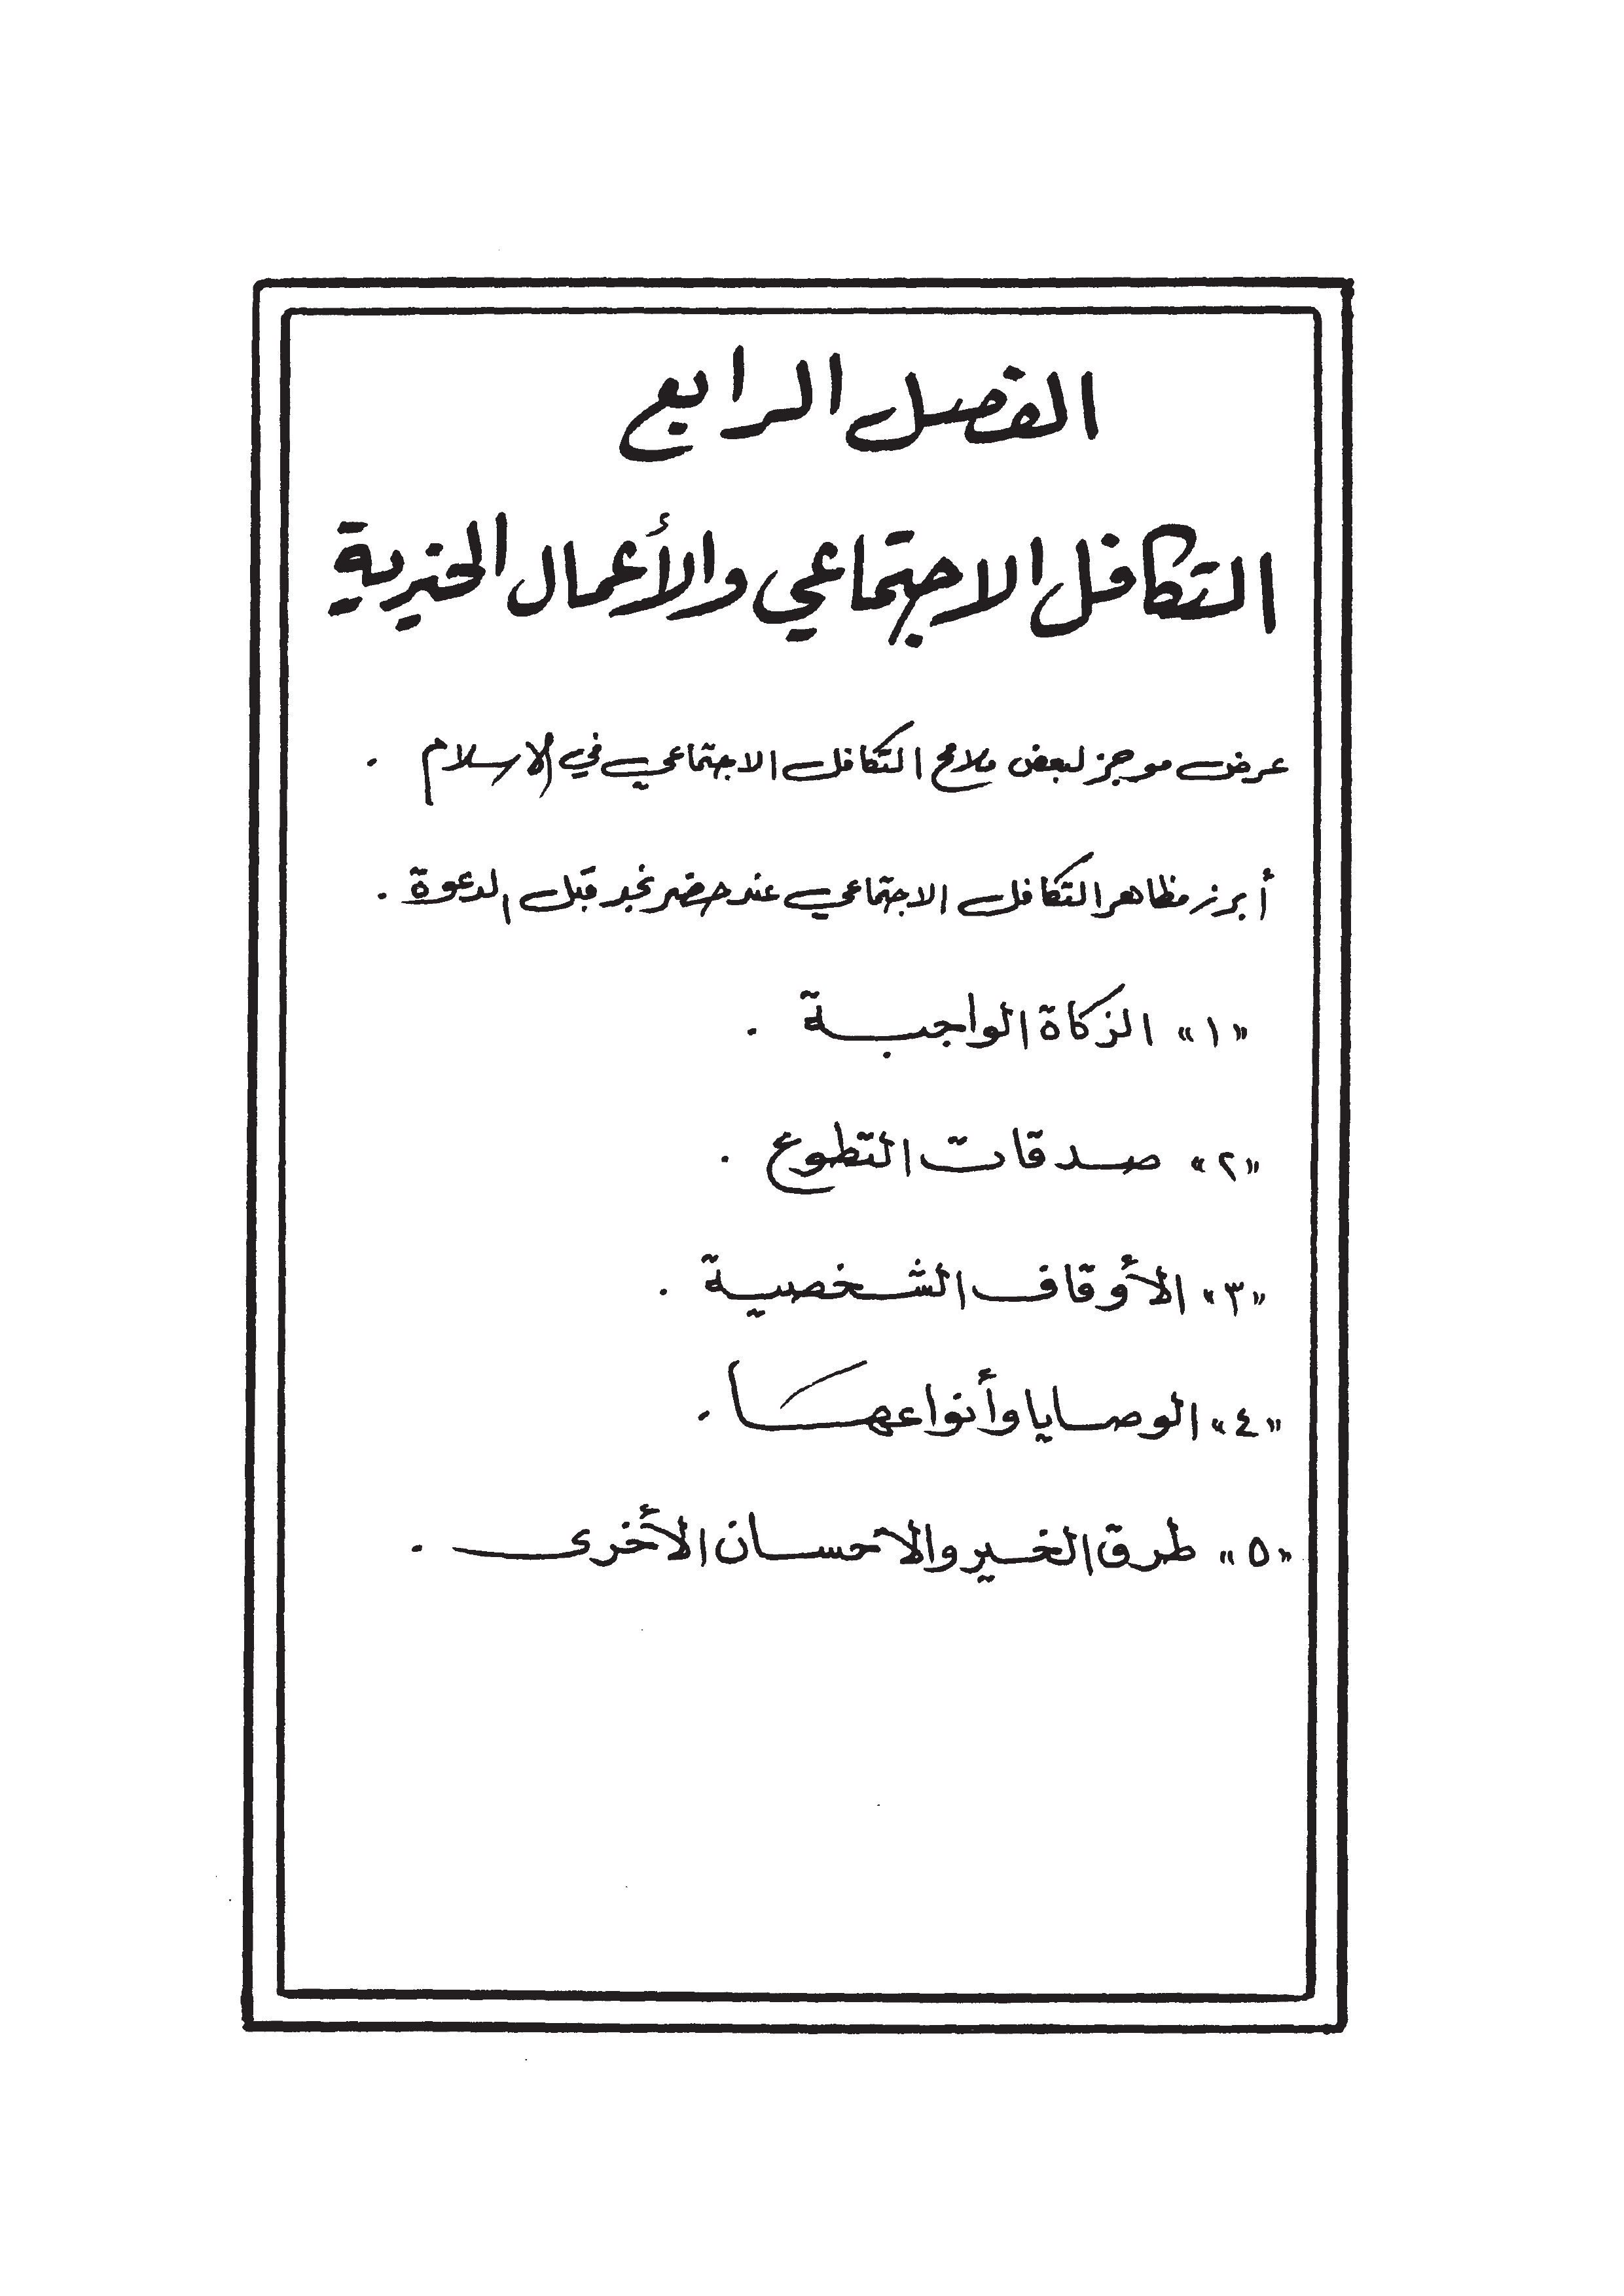 الفصل الرابع
التكافل الاجتماعي والأعمال الخيرية
عرض موجز لبعض ملامح التكافل الاجتماعي في الاسلام .
أبرز مظاهر التكافل الاجتماعي عند حضر نجد قبل الدعوة .
«١» الزكاة الواجبة .
«٢» صدقات التطوع .
«٣» الأوقاف الشخصية .
«٤» الوصايا وأنواعها .
«٥» طرق الخير والاحسان الأخرى .